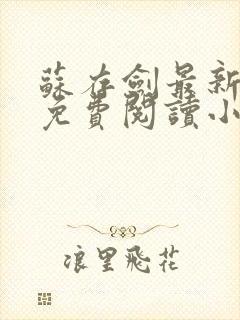 蘇存劍最新
免費閱讀小
浪里飛花